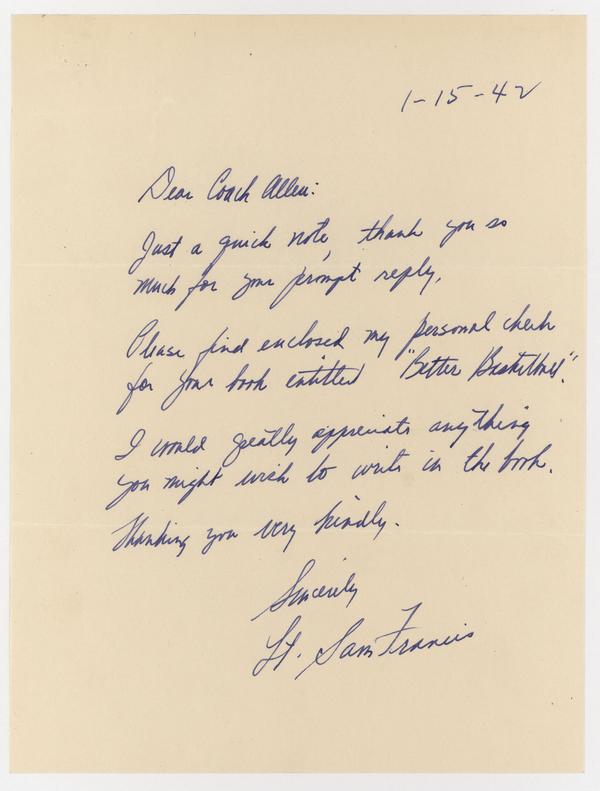 1-15-42
Dear Coach Allen:
Just a quick note, thank you so
much for your prompt reply.
Please find enclosed my personal check
for your book entitled "Better Basketball".
I would greatly appreciate anything
you might wish to write in the book.
Thanking you very kindly.
Sincerely
Lt. Sam Francis